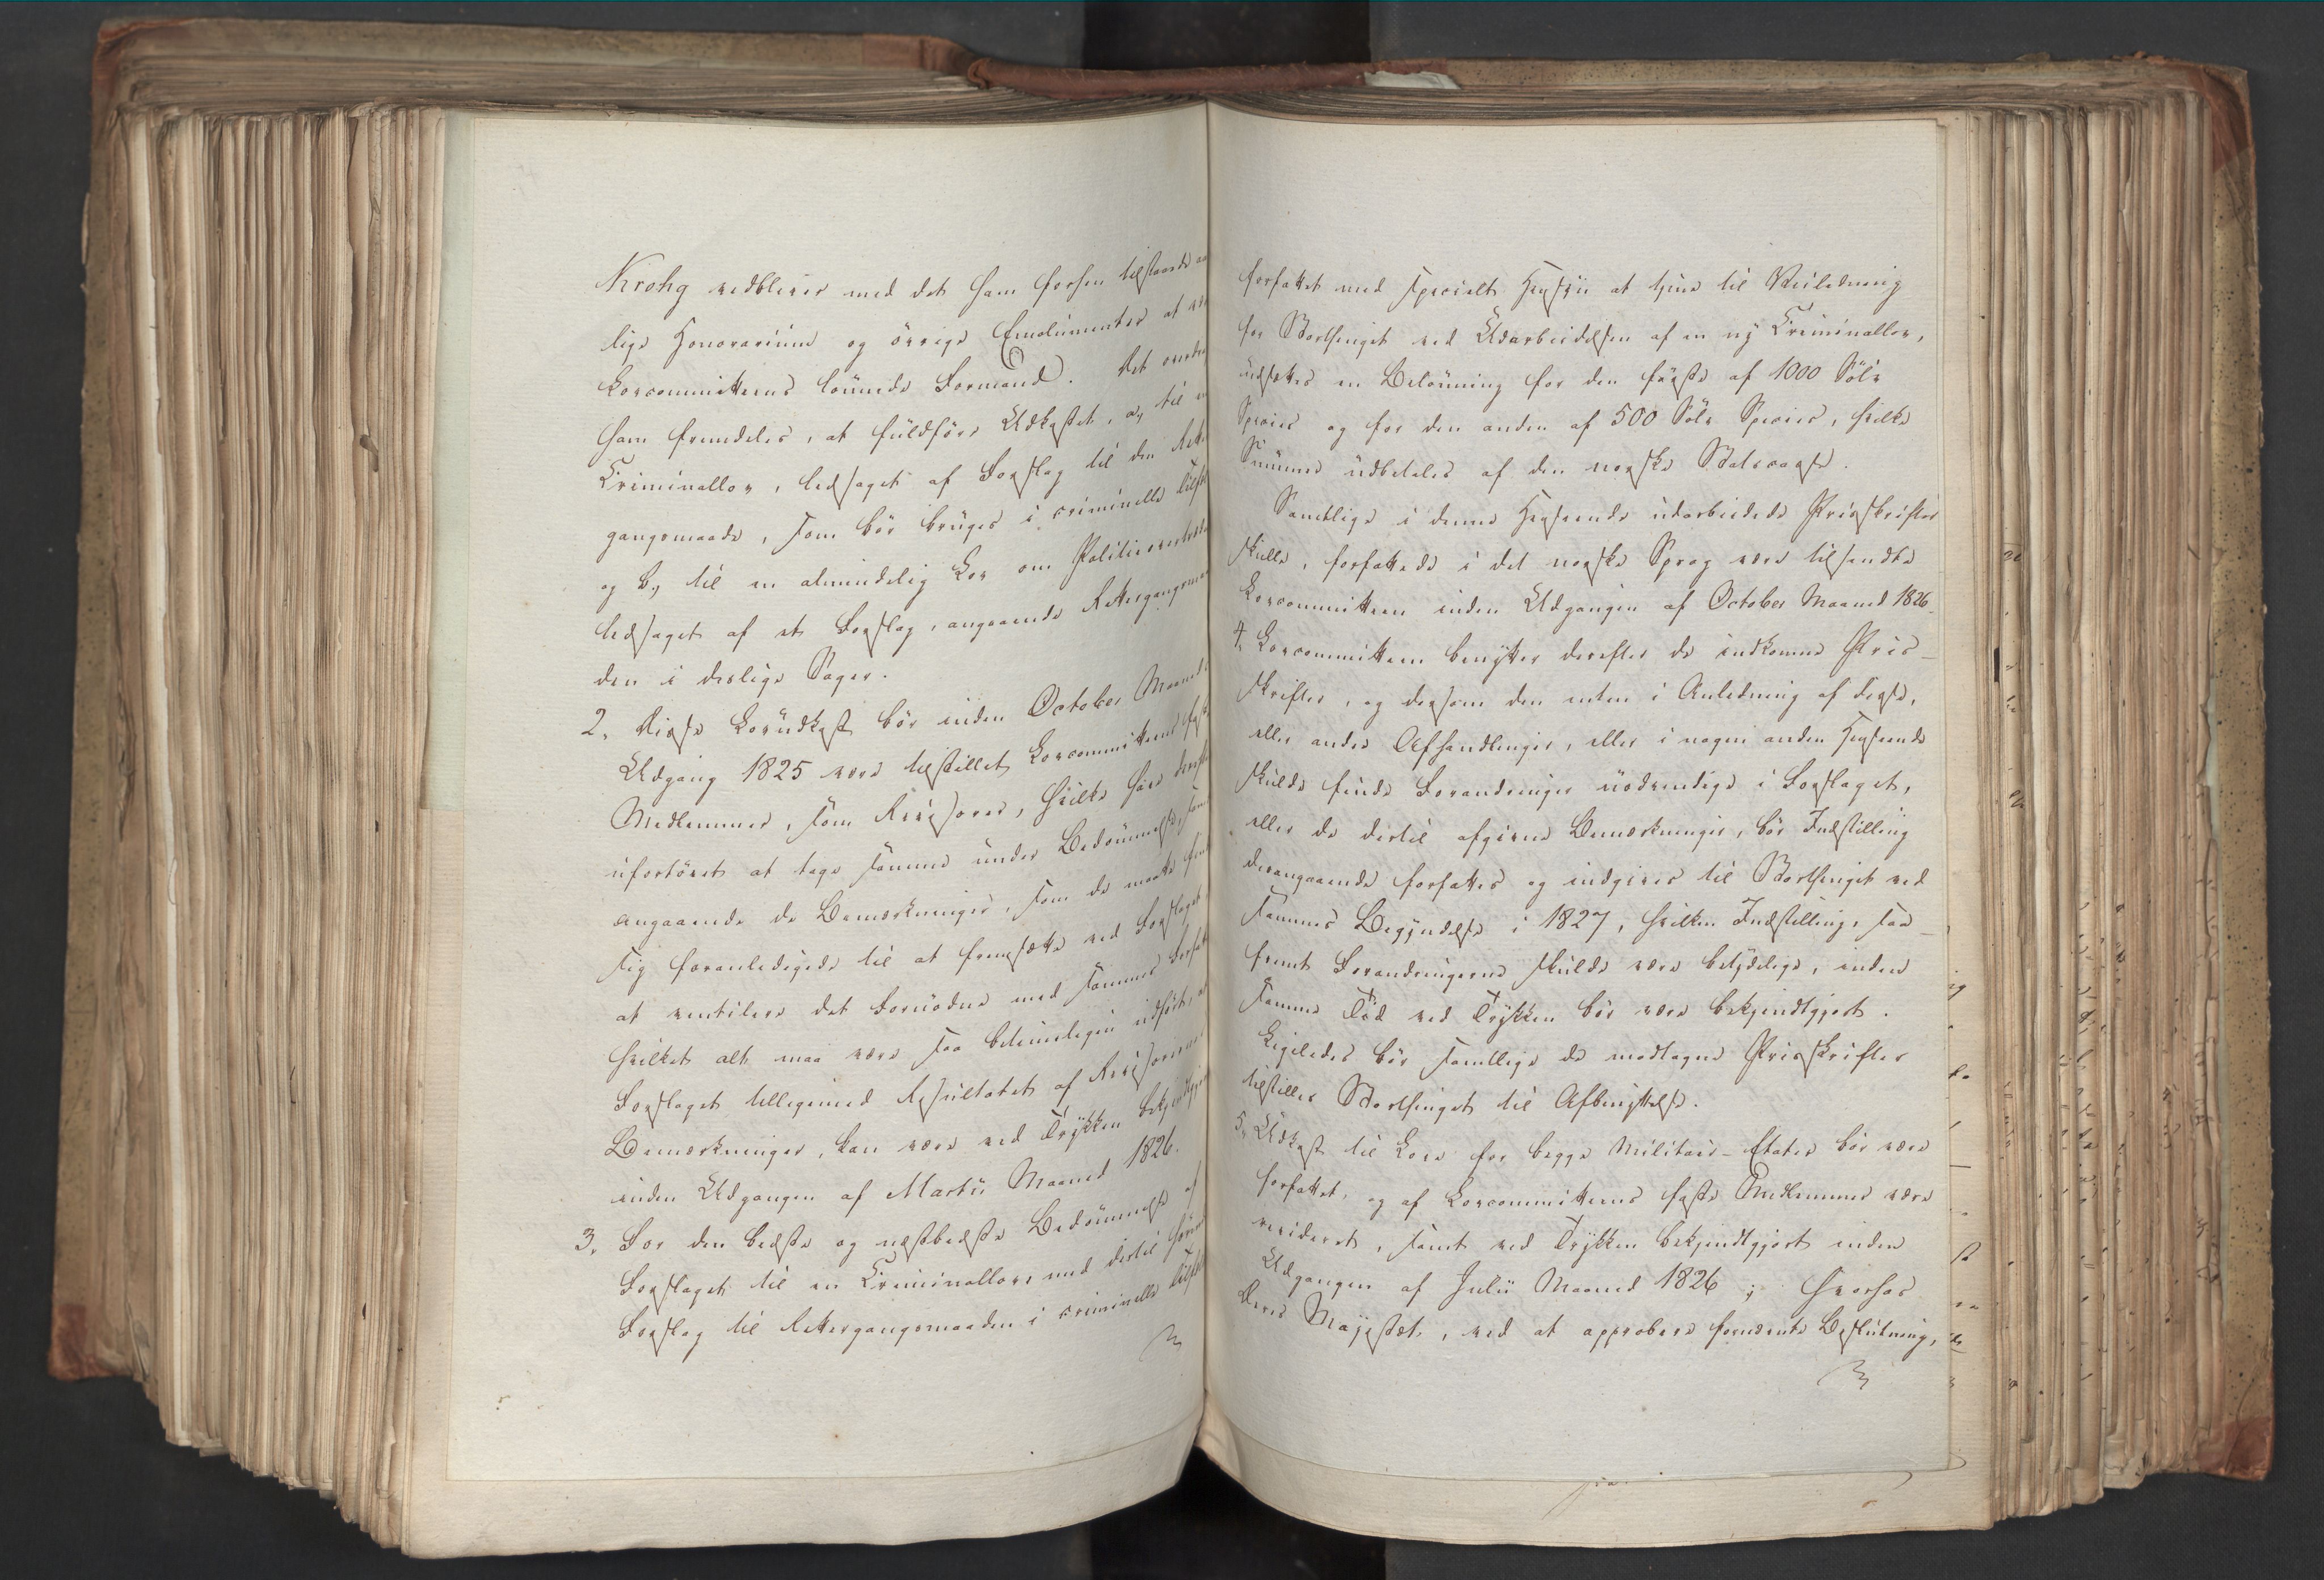 Krohg vedbliver med det ham forhen tilstaaede
lige Honorarium og övrige Emolumenter at
Lovcommitteens lönnede Formand. Det
ham fremdeles, at fuldföre Udkastet, a, til en
Criminallov, ledsaget af Forslag til den
gangsmaade, som bör bruges i criminelle
og b, til en almindelig Lov om
ledsaget af et Forslag, angaaende
den i deslige Sager.
2, Disse Lovudkast bör inden October Maaneds
Udgang 1825 være tilstillet Lovcommitteens faste
Medlemmer, som Revisorer, hvilke have
ufortövet at tage samme under Bedömmelse, samt
angaaende de Bemærkninger, som de maatte finde
sig foranledigede til at fremsætte ved Forslaget,
at ventilere det Fornödne med sammes
hvilket alt maa være saa betimeligen udfört, at
Forslaget tilligemed Resultatet af Revisorernes
Bemærkninger, kan være ved Trykken bekjendtgjort
inden Udgangen af Martii Maaned 1826.
3, For den bedste og næstbedste Bedömmelse af
Forslaget til en Criminallov med dertil hörende
Forslag til Rettergangsmaaden i criminelle
forfattet med specielt Hensyn at tjene til Veiledning
for Storthinget ved Udarbeidelsen af en ny Criminallov,
udsættes en Belönning for den förste af 1000 Sölv
Species og for den anden af 500 Sölv Species, hvilke
Summer udbetales af den norske Statscasse.
Samtlige i denne Henseende udarbeidede Prisskrifter
skulle, forfattede i det norske Sprog være tilsendte
Lovcommitteen inden Udgangen af October Maaned 1826.
4, Lovcommitteen benytter derefter de indkomne Pris-
skrifter, og dersom den enten i Anledning af disse,
eller andre Afhandlinger, eller i nogen anden Henseende
skulde finde Forandringer nödvendige i Forslaget,
eller de dertil afgivne Bemærkninger, bör Indstilling
derangaaende forfattes og indgives til Storthinget ved
sammes Begyndelse i 1827, hvilken Indstilling, saa-
fremt Forandringerne skulde være betydelige, inden
samme Tid ved Trykken bör være bekjendtgjort.
Ligeledes bör samtlige de modtagne Prisskrifter
tilstilles Storthinget til Afbenyttelse.
5, Udkast til Love for begge Militair-Etater bör være
forfattet, og af Lovcommitteens faste Medlemmer være
revideret, samt ved Trykken bekjendtgjort inden
Udgangen af Julii Maaned 1826; hvorhos
Deres Majestæt, ved at approbere fornævnte Beslutning,